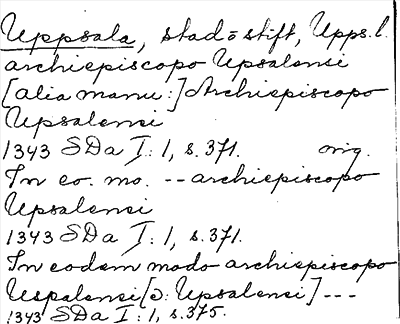 Uppsala, stad o stift, Upps. l.
archiepiscopo Upsalensi
[alia manu:] Archiepiscopo
Upsalensi
1343 SDa I: 1, s. 371. orig.
In eo. mo. -- archiepiscopo
Upsalensi
1343 SDa I: 1, s. 371.
In eodem modo archiepiscopo
Uspalensi [ɔ: Upsalensi] ---
1343 SDa I: 1, s. 375.